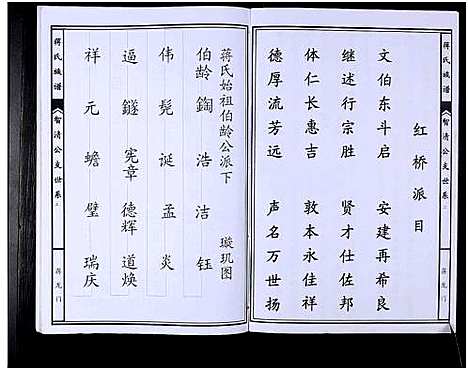 红桥派目
文伯东斗启 安建再希良
继述行宗胜 贤才仕佐邦
体仁长惠吉 敦本永佳祥
德厚流芳远 声名万世扬
蒋氏族谱
智清公支世系
蒋龙门
蒋氏始祖伯龄公派下 璇玑图
伯龄 鋾 浩 洁 钰
伟 髡 诞 孟 炎
逼 鐩 宪章 德辉 道焕
祥 元 蟾 璧 瑞庆